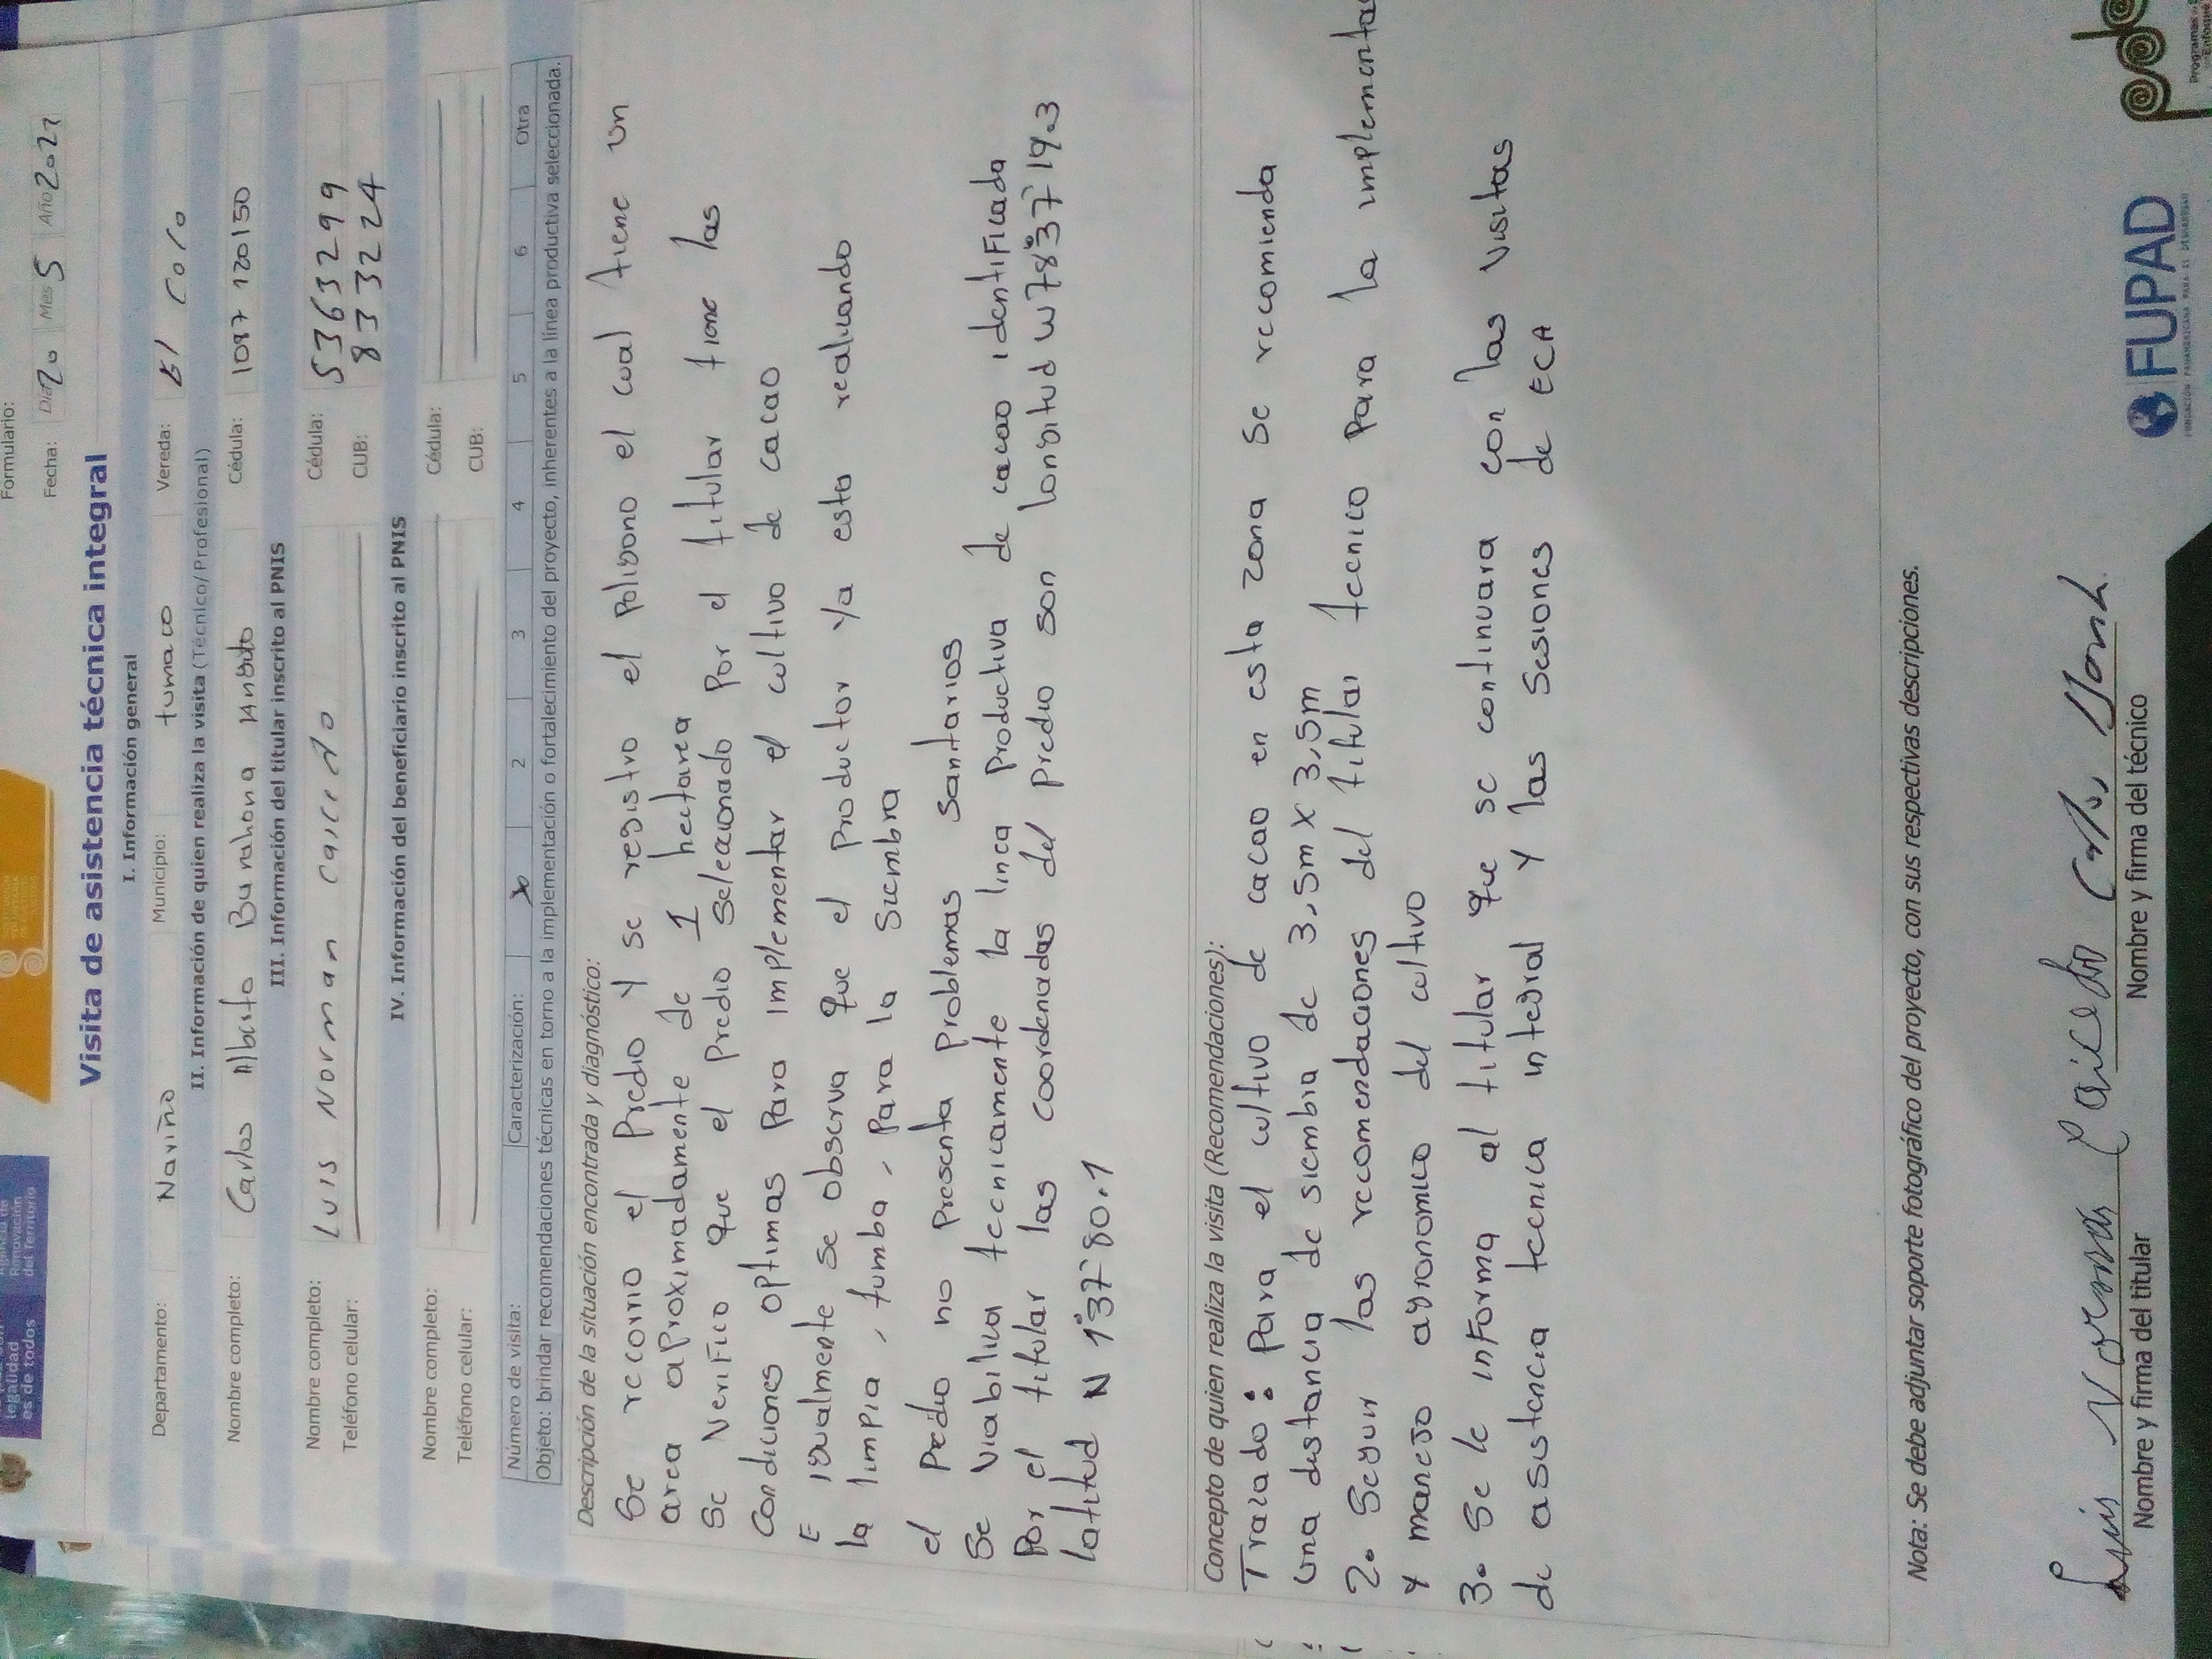 legalidad
es de todos
Agencia de
Renovación
del Territorio
Formulario:
Fecha: Día 20 Mes 5 Año 2021
Visita de asistencia técnica integral
I. Información general
Departamento: Nariño Municipio: tumaco Vereda: El Coro
II. Información de quien realiza la visita (Técnico/Profesional)
Nombre completo: Carlos Alberto Barahona Cédula: 1087120150
III. Información del titular inscrito al PNIS
Nombre completo: LUIS NORMAN CAICEDO Cédula: 5363299
Teléfono celular: CUB: 833224
IV. Información del beneficiario inscrito al PNIS
Nombre completo: Cédula:
Teléfono celular: CUB:
Número de visita: Caracterización: X 2 3 4 5 6 Otra
Objeto: brindar recomendaciones técnicas en torno a la implementación o fortalecimiento del proyecto, inherentes a la línea productiva seleccionada.
Descripción de la situación encontrada y diagnóstico:
Se recorrio el Predio y se registro el Poligono el cual tiene un
area aproximadamente de 1 hectarea
Se Verifico que el predio Seleccionado Por el titular tiene las
Condiciones optimas Para implementar el cultivo de cacao
E igualmente se observa que el Productor ya esta realizando
la limpia, tumba, Para la Siembra
el Predio no Presenta Problemas Sanitarios
Se Viabiliza tecnicamente la linea Productiva de cacao identificada
Por el titular las coordenadas del predio son longitud W78°37'19.3
latitud N 1°37'80.1
Concepto de quien realiza la visita (Recomendaciones):
Trazado: Para el cultivo de cacao en esta zona Se recomienda
una distancia de siembra de 3,5m x 3,5m
2. Seguir las recomendaciones del titular tecnico Para la implementa
y manejo agronomico del cultivo
3. Se le informa al titular que se continuara con las Visitas
de asistencia tecnica integral y las Sesiones de ECA
Nota: Se debe adjuntar soporte fotográfico del proyecto, con sus respectivas descripciones.
Luis Norman Caicedo
Nombre y firma del titular
Nombre y firma del técnico
FUPAD
FUNDACIÓN PANAMERICANA PARA EL DESARROLLO